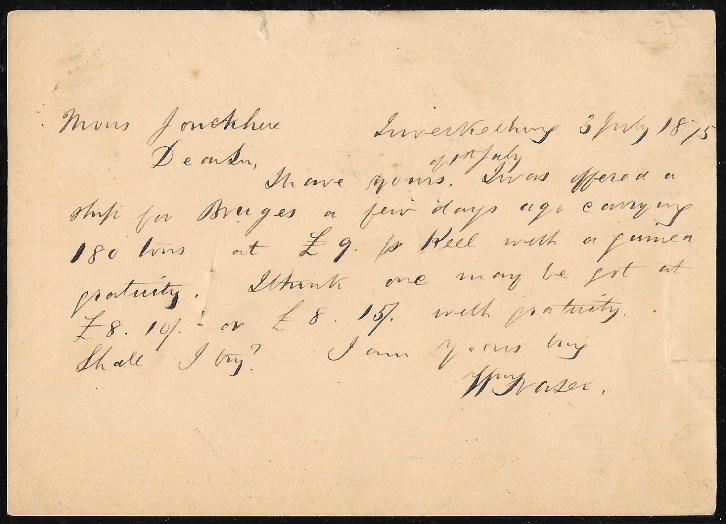 Mons Jonckhere Inverkeithing 3 July 1875
Dear Sir,
of 1st July
I have yours. I was offered a
ship for Bruges a few days ago carrying
180 tons at £9. p Keel with a guinea
gratuity. I think one may be got at
£8. 10/. or £8. 15/. with gratuity.
Shall I try? I am yours try
Wm Fraser.